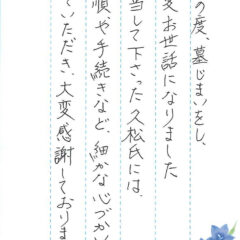 の度、墓じまいをし、
変お世話になりました
当して下さった久松氏には、
順や手続きなど、細かな心づかい
ていただき、大変感謝しておりま